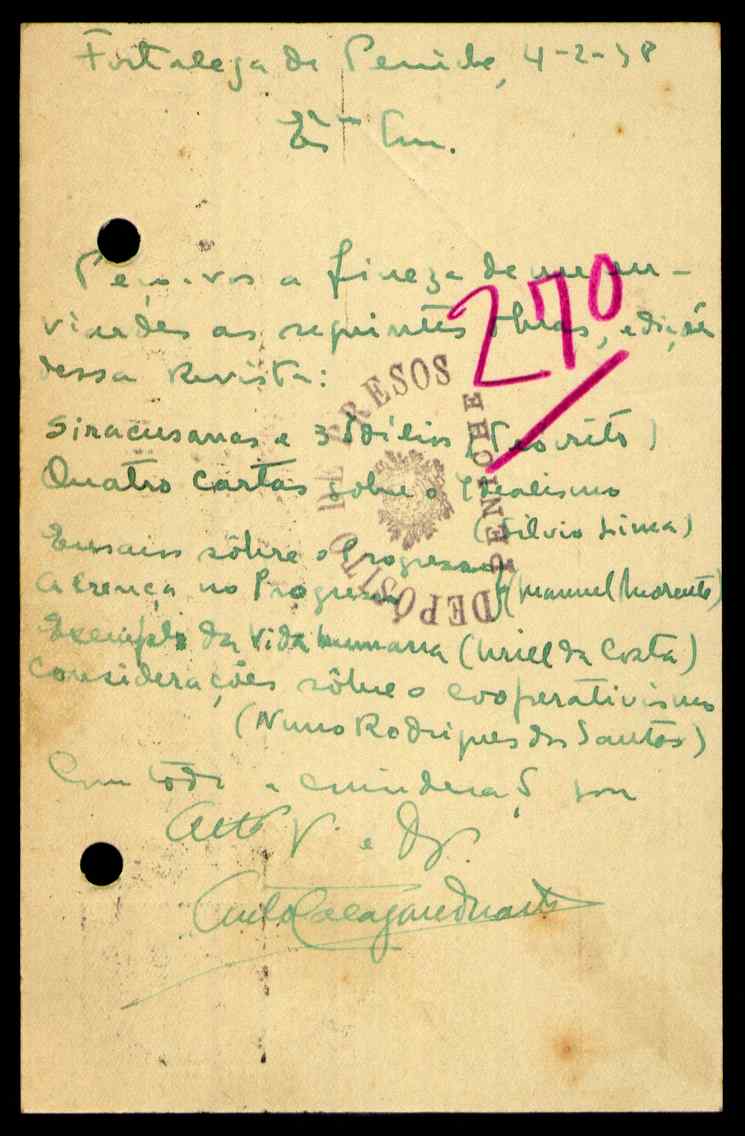 Fortaleza de Peniche, 4-2-38
Exmo Snr.
Peço-vos a fineza de me en-
viardes as seguintes obras, edições
dessa Revista:
Siracusanas e 3 Idílios (Teócrito)
Quatro Cartas sobre o Idealismo
(Silvio Lima)
Ensaios sôbre o Progresso
A crença no Progresso (Manuel Morente)
Exemplo da Vida humana (Uriel da Costa)
Considerações sôbre o cooperativismo
(Nuno Rodrigues dos Santos)
Com tôda a consideração sou
Atto V. e
270
DEPÓSITO DE PRESOS
PENICHE